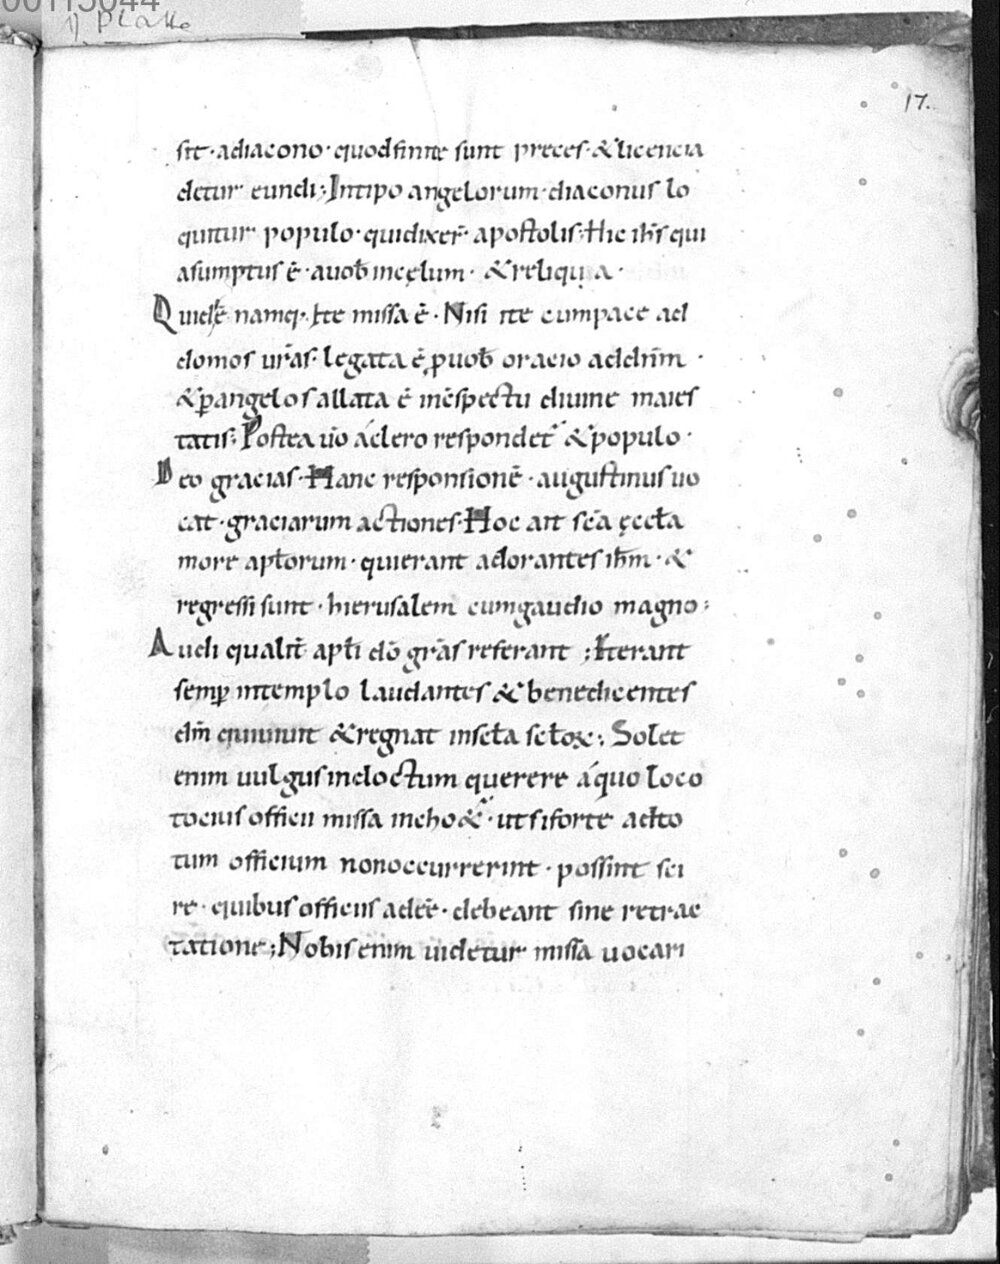 00115044
17.
sit · adiacono · quod finite sunt preces · & licencia
detur eundi; In tipo angelorum · diaconus lo
quitur populo · qui dixer̄ · apostolis · Hic ih̄s qui
asumptus ē · auob̄ in cęlum · & reliqua ·
Quid ē namq; · Ite missa ē · Nisi ite cum pace ad
domos ur̄as · legata ē ꝓ uob̄ oracio ad dn̄m ·
& ꝑ angelos allata ē in c̄spectu diuine maies
tatis; Postea u̅o a clero respondet̄ & populo ·
Deo gracias · Hanc responsionē · augustinus uo
cat · graciarum actiones · Hoc ait sc̄a ęccła
more apłorum · qui erant adorantes ih̄m · &
regressi sunt · hierusalem cum gaudio magno;
Audi qualit̄ apłi dō grās referant ; Et erant
semꝑ in templo laudantes & benedicentes
dm̄ qui uiuit & regnat in scła scłoꝝ; Solet
enim uulgus indoctum querere a quo loco
tocius officii missa incho&̄ · ut si forte ad to
tum officium non occurrerint · possint sci
re · quibus officiis adeē · debeant sine retrac
tatione; Nobis enim uidetur missa uocari